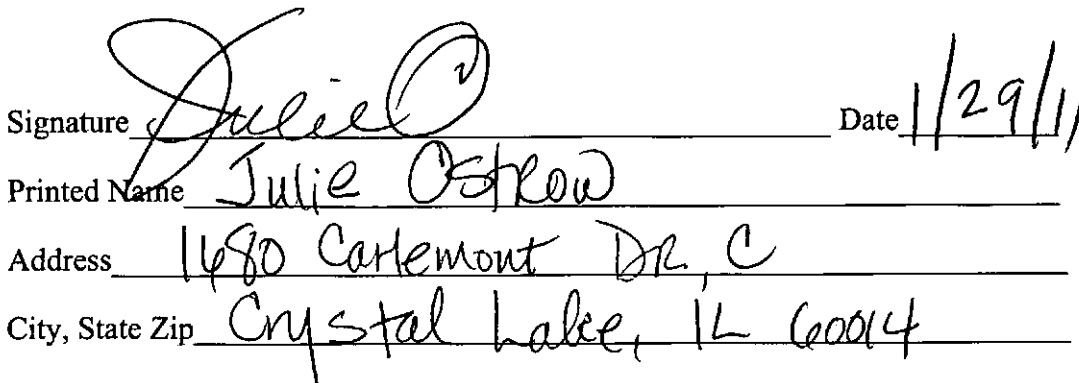 Signature Julie O Date 1/29/11
Printed Name Julie Ostrow
Address 1680 Carlemont DR, C
City, State Zip Crystal Lake, IL 60014